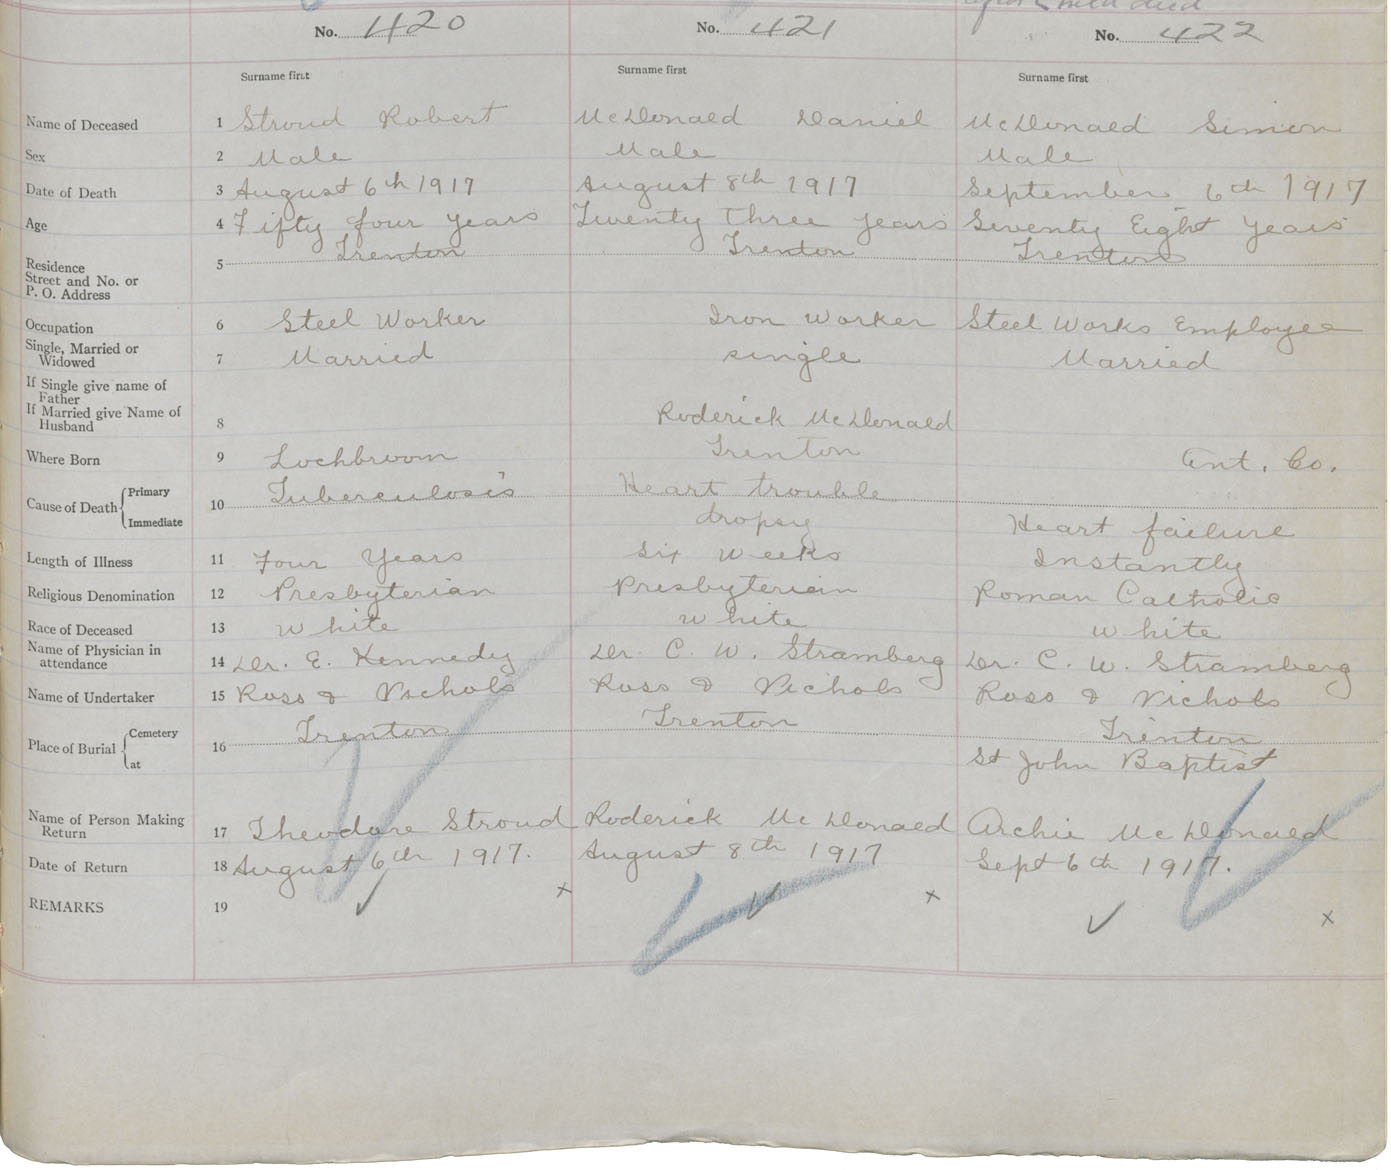 No. 420 No. 421 No. 422
Surname first Surname first Surname first
Name of Deceased 1 Stroud Robert McDonald Daniel McDonald Simon
Sex 2 Male Male Male
Date of Death 3 August 6th 1917 August 8th 1917 September 6th 1917
Age 4 Fifty four years Twenty Three years Seventy Eight years
Residence
Street and No. or
P. O. Address 5 Trenton Trenton Trenton
Occupation 6 Steel Worker Iron Worker Steel Works Employee
Single, Married or
Widowed 7 Married single Married
If Single give name of
Father
If Married give Name of
Husband 8 Roderick McDonald
Where Born 9 Lochbroom Trenton Ant. Co.
Cause of Death Primary 10 Tuberculosis Heart trouble
Immediate dropsy Heart failure
Length of Illness 11 Four Years Six Weeks Instantly
Religious Denomination 12 Presbyterian Presbyterian Roman Catholic
Race of Deceased 13 White White White
Name of Physician in
attendance 14 Dr. E. Kennedy Dr. C. W. Stramberg Dr. C. W. Stramberg
Name of Undertaker 15 Ross & Nichols Ross & Nichols Ross & Nichols
Place of Burial Cemetery 16 Trenton Trenton Trenton
at St John Baptist
Name of Person Making
Return 17 Theodore Stroud Roderick McDonald Archie McDonald
Date of Return 18 August 6th 1917. August 8th 1917 Sept 6th 1917.
REMARKS 19 x x x